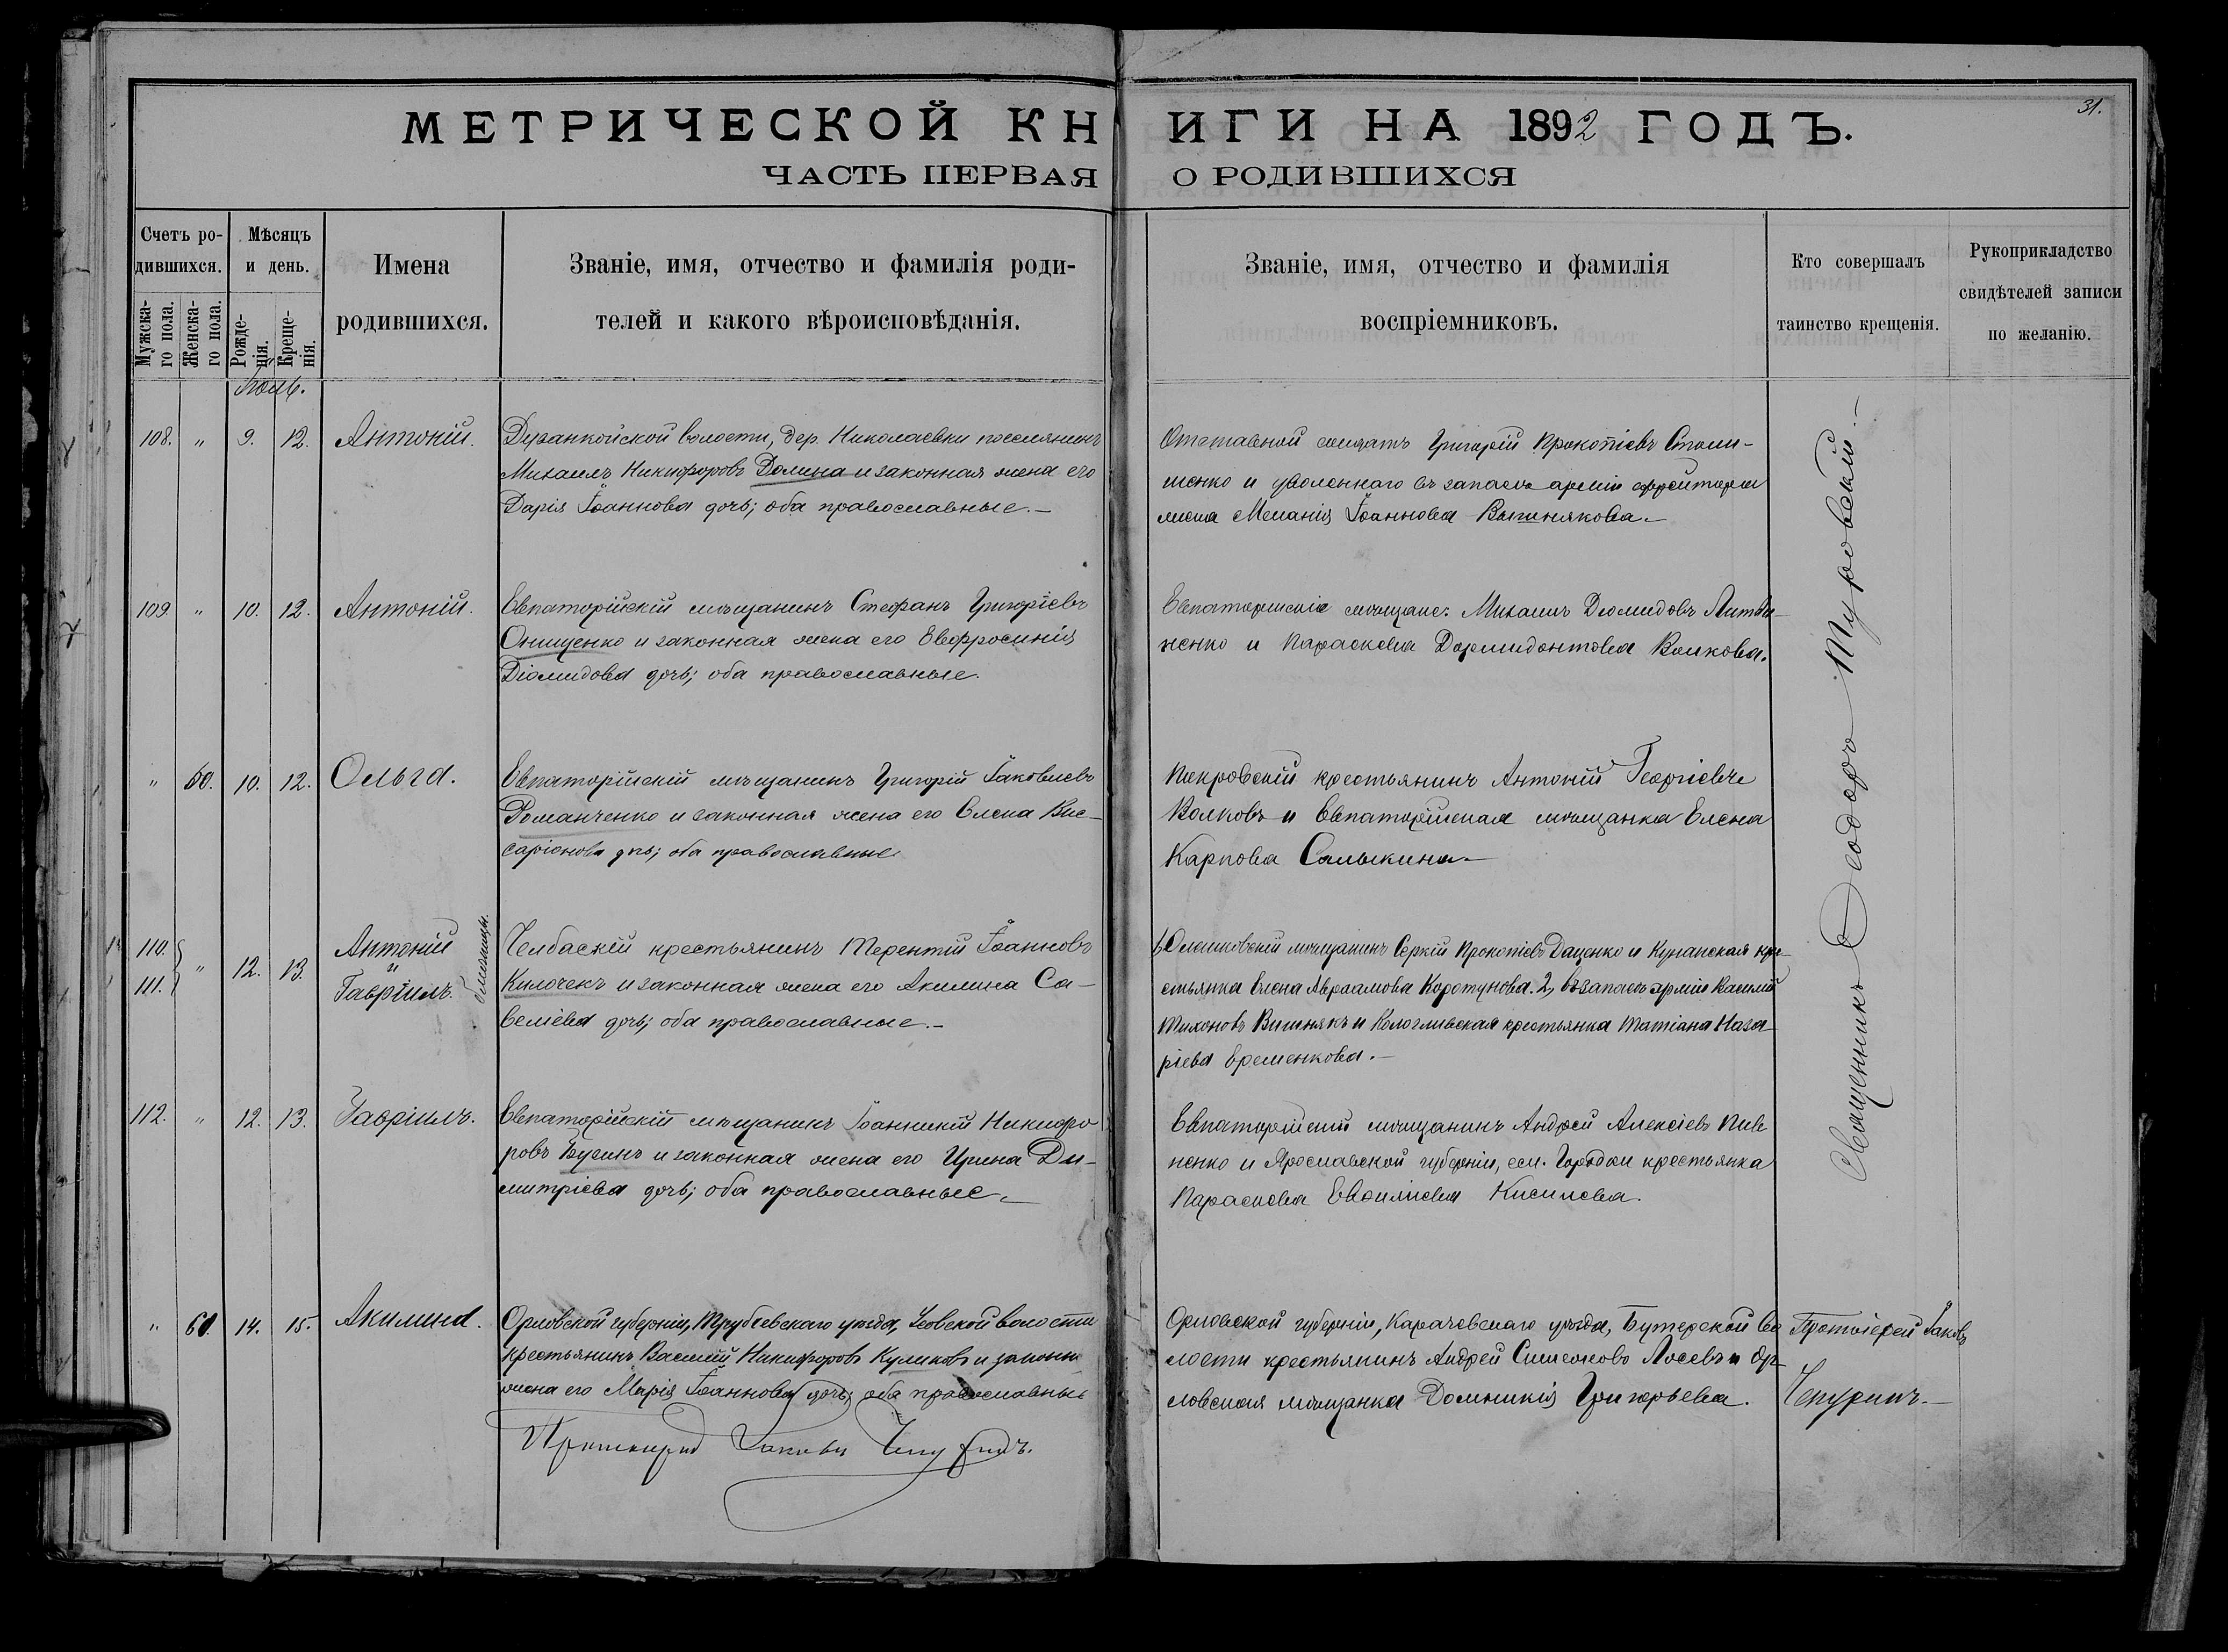 МЕТРИЧЕСКОЙ КНИГИ НА 1892 ГОДЪ.
31.
ЧАСТЬ ПЕРВАЯ О РОДИВШИХСЯ
Счетъ родившихся.
Мужскаго пола.
Женскаго пола.
Мѣсяцъ и день.
Рожденія.
Крещенія.
Имена родившихся.
Званіе, имя, отчество и фамилія роди-
телей и какого вѣроисповѣданія.
Званіе, имя, отчество и фамилія
воспріемниковъ.
Кто совершалъ
таинство крещенія.
Рукоприкладство
свидѣтелей записи
по желанію.
Іюль.
108. " 9. 12. Антоній.
Дузанкойской волости, дер. Николаевки поселянинъ
Михаилъ Никифоровъ Долина и законная жена его
Дарія Іоаннова дочь; оба православные.—
Отставной солдатъ Григорій Прокопіевъ
и уволеннаго въ запасъ арміи ефрейтора
жена Меланія Іоаннова Вишнякова.—
109 " 10. 12. Антоній.
Евпаторійскій мѣщанинъ Стефанъ Григоріевъ
Онищенко и законная жена его Евфросинія
Діомидова дочь; оба православные.
Евпаторійскіе мѣщане: Михаилъ Діомидовъ Литви-
ненко и Параскева Дормидонтова Волкова.
" 60. 10. 12. Ольга.
Евпаторійскій мѣщанинъ Григорій Іаковлевъ
Романченко и законная жена его Елена Вис-
саріонова дчь; оба православные
Покровскій крестьянинъ Антоній Георгіевъ
Волковъ и Евпаторійская мѣщанка Елена
Карпова Салыкина.—
110. 111. " 12. 13. Антоній
и
Гавріилъ.
близнецы.
Челбаскій крестьянинъ Терентій Іоанновъ
Килочекъ и законная жена его Акилина Са-
веліева дочь; оба православные.—
1, Олешковскій мѣщанинъ Сергій Прокопіевъ Даценко и кре-
стьянка Елена Авраамова Коротунова. 2, въ запасѣ арміи Василій
Тихоновъ Вишнякъ и крестьянка Татіана Наза-
ріева Еременкова.—
112. " 12. 13. Гавріилъ.
Евпаторійскій мѣщанинъ Іоанникій Никифо-
ровъ Бугинъ и законная жена его Ирина Ди-
митріева дочь; оба православные.—
Евпаторійскій мѣщанинъ Андрей Алексіевъ Пив
ненко и Ярославской губерніи, сел. Городки крестьянка
Параскева Киселева.
Священникъ Ѳеодоръ Туровскій.—
" 61. 14. 15. Акилина.
Орловской губерніи, Трубчевскаго уѣзда, волости
крестьянинъ Василій Никифоровъ Куликовъ и законн.
жена его Марія Іоаннова дочь; оба православные
Орловской губерніи, Карачевскаго уѣзда, Бутерской во
лости крестьянинъ Андрей Симеоновъ Лосевъ и Ор-
ловская мѣщанка Домникія Григорьева.
Протоіерей Іаковъ
Чепуринъ.—
Протоіерей Іаковъ Чепуринъ.